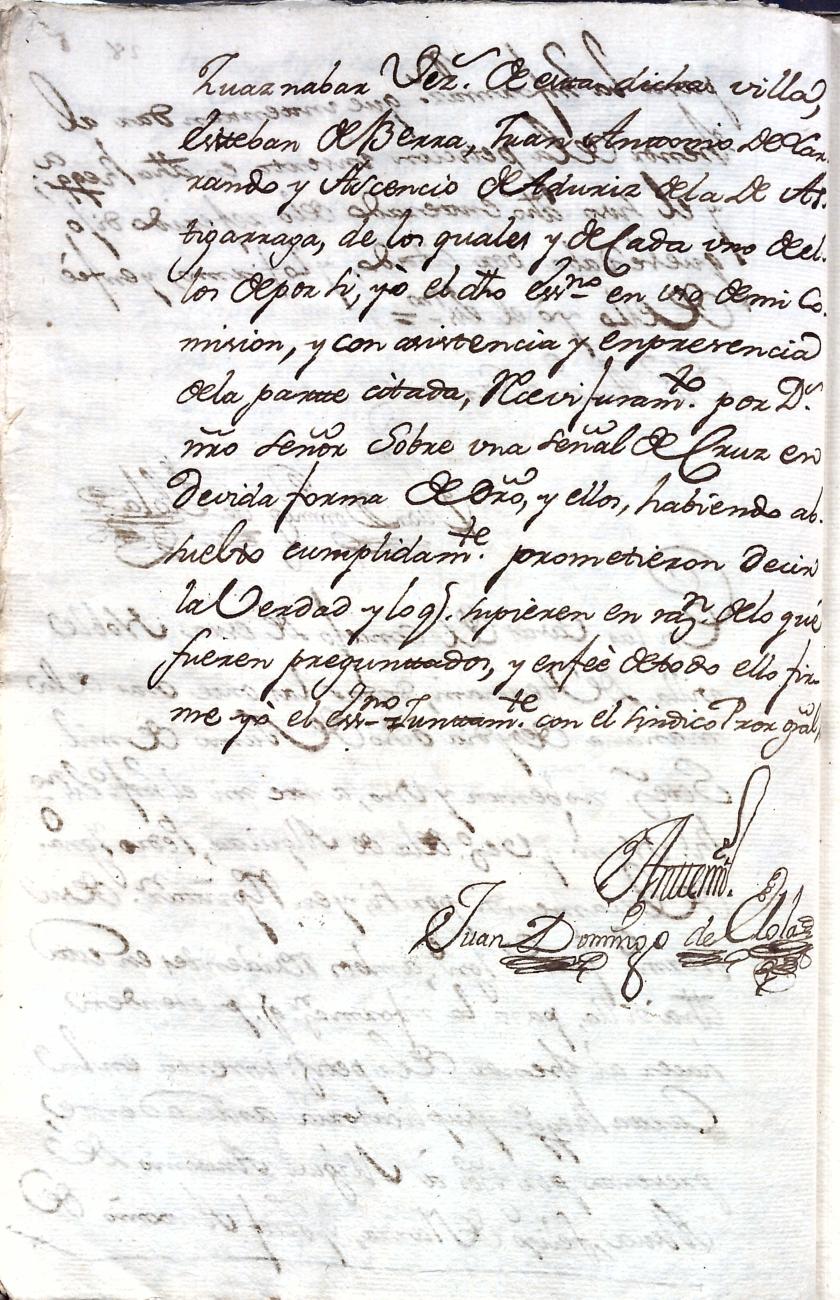 Zuaznabar Vez.s de esta dicha villa,
Esteban de Berra, Juan Antonio de Lar-
rando y Ascencio de Aduriz de la de As-
tigarraga, de los quales y de Cada uno de el-
los de por si, yo el dho essno en vso de mi Co-
mision, y con asistencia y en presencia
de la parte citada, Recevi juramto. por Ds.
nro señor Sobre una señal de Cruz en
devida forma de dro, y ellos, habiendo ab-
suelto cumplidamte. prometieron decir
la Verdad y lo q. supieren en razn. de lo que
fueren preguntados, y en feè de todo ello fir-
me yò el essno Juntamte. con el sindico Pror gral
Antemi.
Juan Domingo de Elola